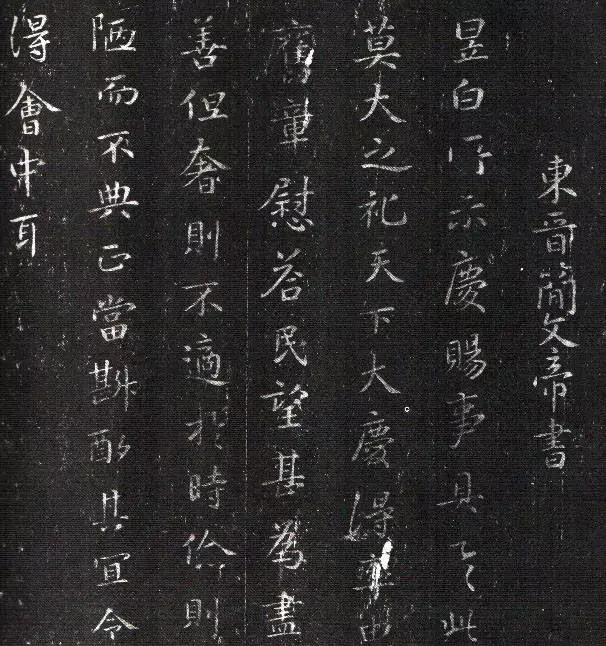 東晉簡文帝書
昱白所示慶賜事具之此
莫大之祀天下大慶得率由
舊章慰答民望甚為盡
善但奢則不適於時儉則
陋而不典正當斟酌其宜令
得會中耳